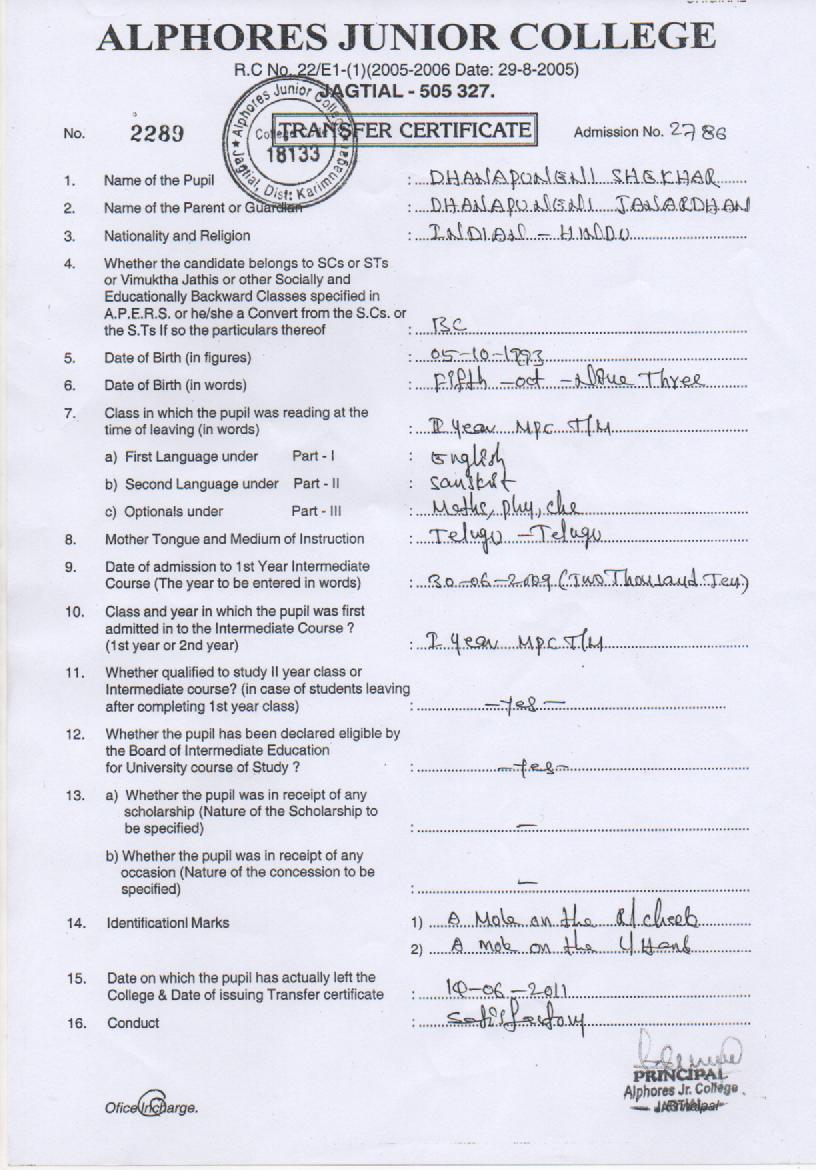 ALPHORES JUNIOR COLLEGE
R.C No. 22/E1-(1)(2005-2006 Date: 29-8-2005)
JAGTIAL - 505 327.
No. 2289 TRANSFER CERTIFICATE Admission No. 2786
Alphores Junior College
College Code
18133
Jagtial, Dist: Karimnagar
1. Name of the Pupil : DHANAPUNENI SHEKHAR
2. Name of the Parent or Guardian : DHANAPUNENI JANARDHAN
3. Nationality and Religion : INDIAN - HINDU
4. Whether the candidate belongs to SCs or STs
or Vimuktha Jathis or other Socially and
Educationally Backward Classes specified in
A.P.E.R.S. or he/she a Convert from the S.Cs. or
the S.Ts If so the particulars thereof : BC
5. Date of Birth (in figures) : 05-10-1993
6. Date of Birth (in words) : Fifth - oct - Nine Three
7. Class in which the pupil was reading at the
time of leaving (in words) : II year MPC T/M
a) First Language under Part - I : English
b) Second Language under Part - II : Sanskit
c) Optionals under Part - III : Maths, phy, che
8. Mother Tongue and Medium of Instruction : Telugu - Telugu
9. Date of admission to 1st Year Intermediate
Course (The year to be entered in words) : 30-06-2009 (Two Thousand Ten)
10. Class and year in which the pupil was first
admitted in to the Intermediate Course ?
(1st year or 2nd year) : I year MPC T/M
11. Whether qualified to study II year class or
Intermediate course? (in case of students leaving
after completing 1st year class) : - Yes -
12. Whether the pupil has been declared eligible by
the Board of Intermediate Education
for University course of Study ? : - Yes -
13. a) Whether the pupil was in receipt of any
scholarship (Nature of the Scholarship to
be specified) : —
b) Whether the pupil was in receipt of any
occasion (Nature of the concession to be
specified) : —
14. Identificationl Marks 1) A Mole on the R/cheek
2) A mole on the L/Hand
15. Date on which the pupil has actually left the
College & Date of issuing Transfer certificate : 10-06-2011
16. Conduct : Satisfactory
PRINCIPAL
Alphores Jr. College
JAGTIAL
Ofice Incharge.